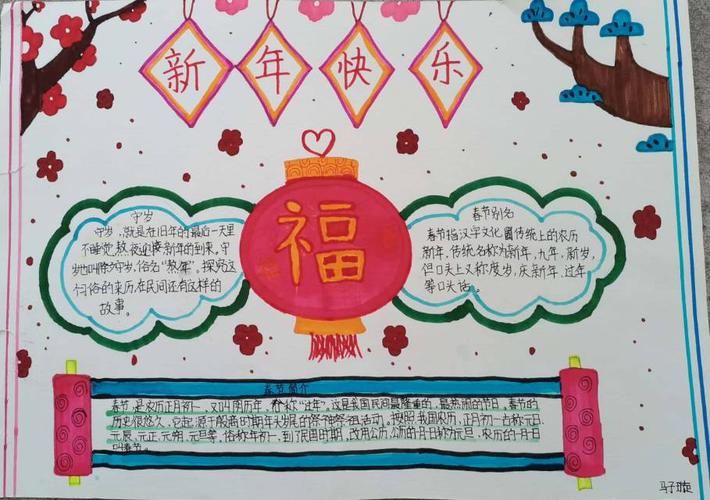 新年快乐
福
守岁
守岁，就是在旧年的最后一天里
不睡觉，熬夜迎接新年的到来。守
岁也叫除夕守岁，俗名"熬年"。探究这
个习俗的来历，在民间还有这样的
故事。
春节别名
春节指汉字文化圈传统上的农历
新年，传统名称为新年，大年，新岁，
但口头上又称度岁，庆新年，过年
等口头语。
春节简介
春节，是农历正月初一，又叫阴历年，俗称"过年"。这是我国民间最隆重的，最热闹的节日，春节的
历史很悠久，它起源于殷商时期年头岁尾的祭神祭祖活动。按照我国农历，正月初一古称元日、
元辰、元正、元朔、元旦等，俗称年初一，到了民国时期，改用公历，公历的一月一日称为元旦，农历的一月一日
叫春节。